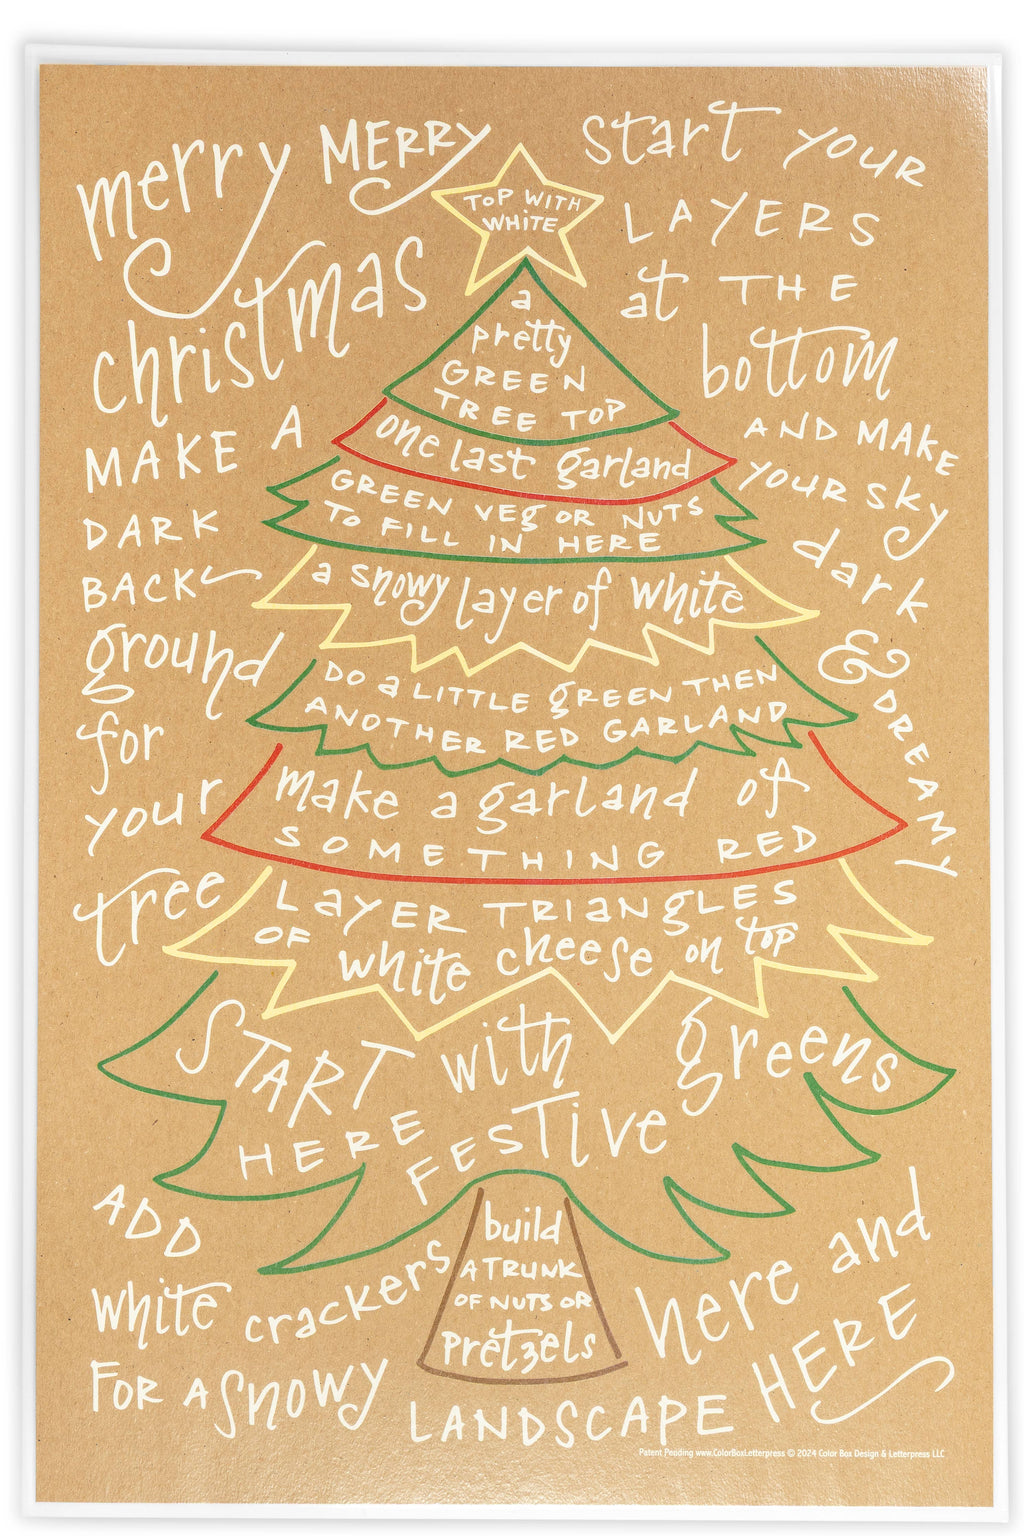 merry MERRY
christmas
MAKE A
DARK
BACK
ground
for
your
tree
START YOUR
LAYERS
at THE
bottom
AND MAKE
YOUR SKY
dark
& DREAMY
TOP WITH
WHITE
a
pretty
GREEN
TREE TOP
one last garland
GREEN VEG OR NUTS
TO FILL IN HERE
a snowy layer of white
DO a LITTLE GREEN THEN
ANOTHER RED GARLAND
make a garland of
SOMETHING RED
LAYER TRIANGLES
OF white cheese on top
START with greens
HERE FESTIVE
build
A TRUNK
OF NUTS OR
pretzels
ADD
white crackers
FOR A SNOWY
LANDSCAPE
here and
HERE
Patent Pending www.ColorBoxLetterpress © 2024 Color Box Design & Letterpress LLC